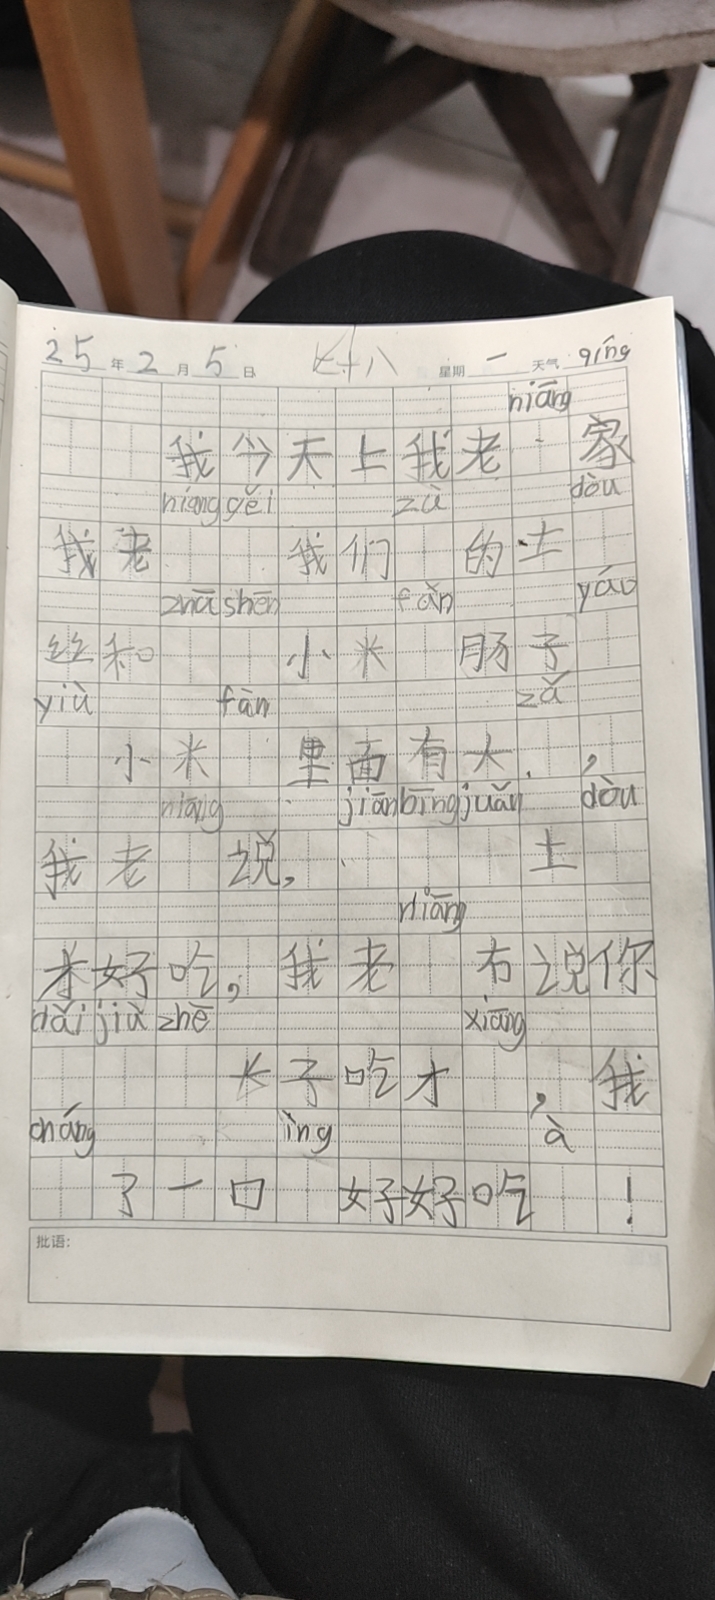 25年2月5日 七十八 星期一 天气qíng
niāng
我今天上我老 家
niang gěi zù dòu
我老 我们 的土
zhā shēn fàn yáo
丝和 小米 肠子
yiù fàn zǎ
小米 里面有大 ,
niāng jiān bīng juǎn dòu
我老 说, 土
niāng
才好吃,我老 右说你
dǎi jiù zhē xiāng
长子吃才 ,我
cháng ìng à
了一口 好好吃 !
批语: